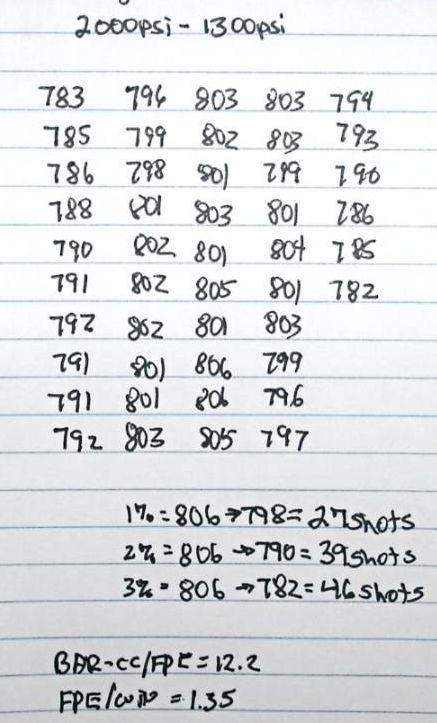 2000psi - 1300psi
783 796 803 803 794
785 799 802 803 793
786 798 801 799 790
788 801 803 801 786
790 802 801 804 785
791 802 805 801 782
792 802 801 803
791 801 806 799
791 801 806 796
792 803 805 797
1% = 806 → 798 = 27shots
2% = 806 → 790 = 39shots
3% = 806 → 782 = 46shots
BAR-CC/FPE = 12.2
FPE/CUIN = 1.35